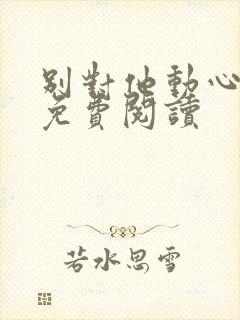 别對他動心
免費閱讀
若水思雪